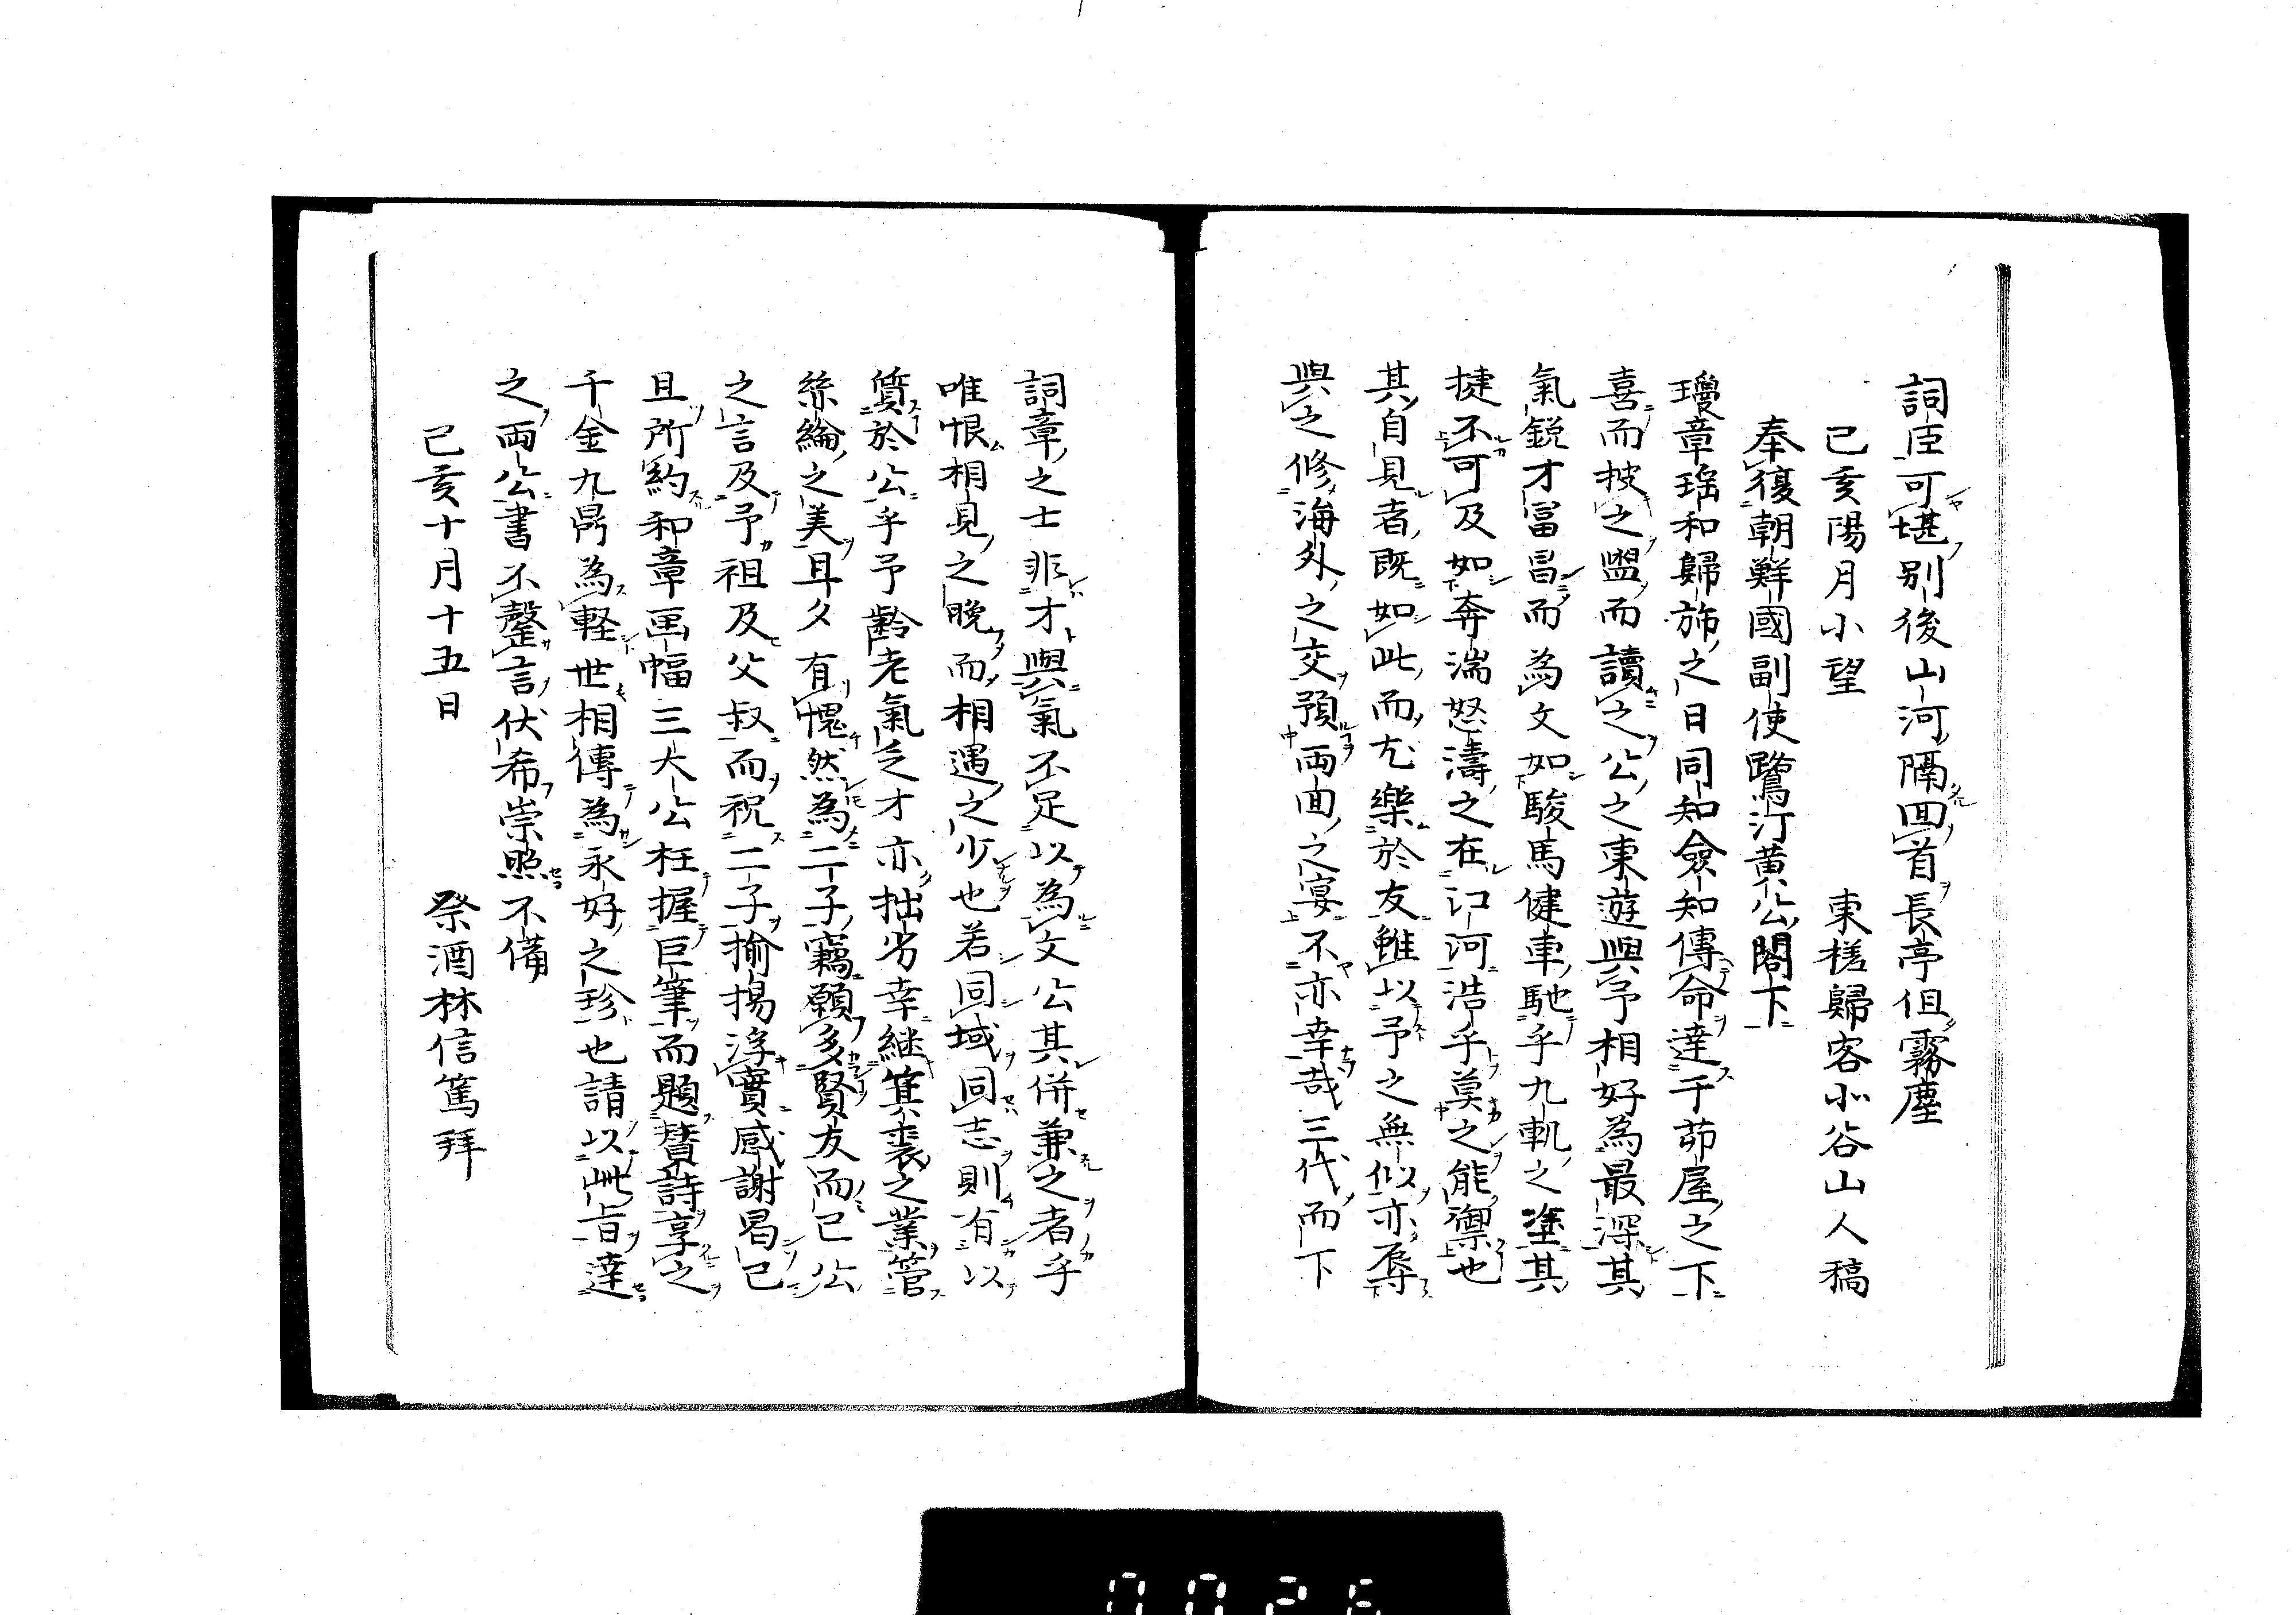 詞臣可堪別後山河隔回首長亭但霧塵
己亥陽月小望　東槎歸客小谷山人稿
奉復朝鮮國副使鷺汀黃公閣下
瓊章瑤和歸施之日同知僉知傳命達于茆屋之下
喜而披之盥而讀之公之東遊與予相好為最深其
氣銳才冨昌而為文如駿馬健車馳乎九軌之塗其
捷不可及如奔湍怒濤之在江河浩乎莫之能禦也
其自見者既如此而尤樂於友雖以予之無似亦辱
與之修海外之交預兩面之宴不亦幸哉三代而下
詞章之士非才與氣不足以為文公其併兼之者乎
唯恨相見之晚而相遇之少也若同域同志則有以
質於公乎予齡老氣乏才亦拙劣幸継箕裘之業管
絲綸之美耳久有愧然為二子竊願多賢友而已公
之言及予祖及父叔而祝二子揄揚浮實感謝曷已
且所約和章画幅三大公枉握巨筆而題賛詩享之
千金九鼎為軽世相傳為永好之珍也請以此旨達
之兩公書不罄言伏希崇照不備
己亥十月十五日　祭酒林信篤拜